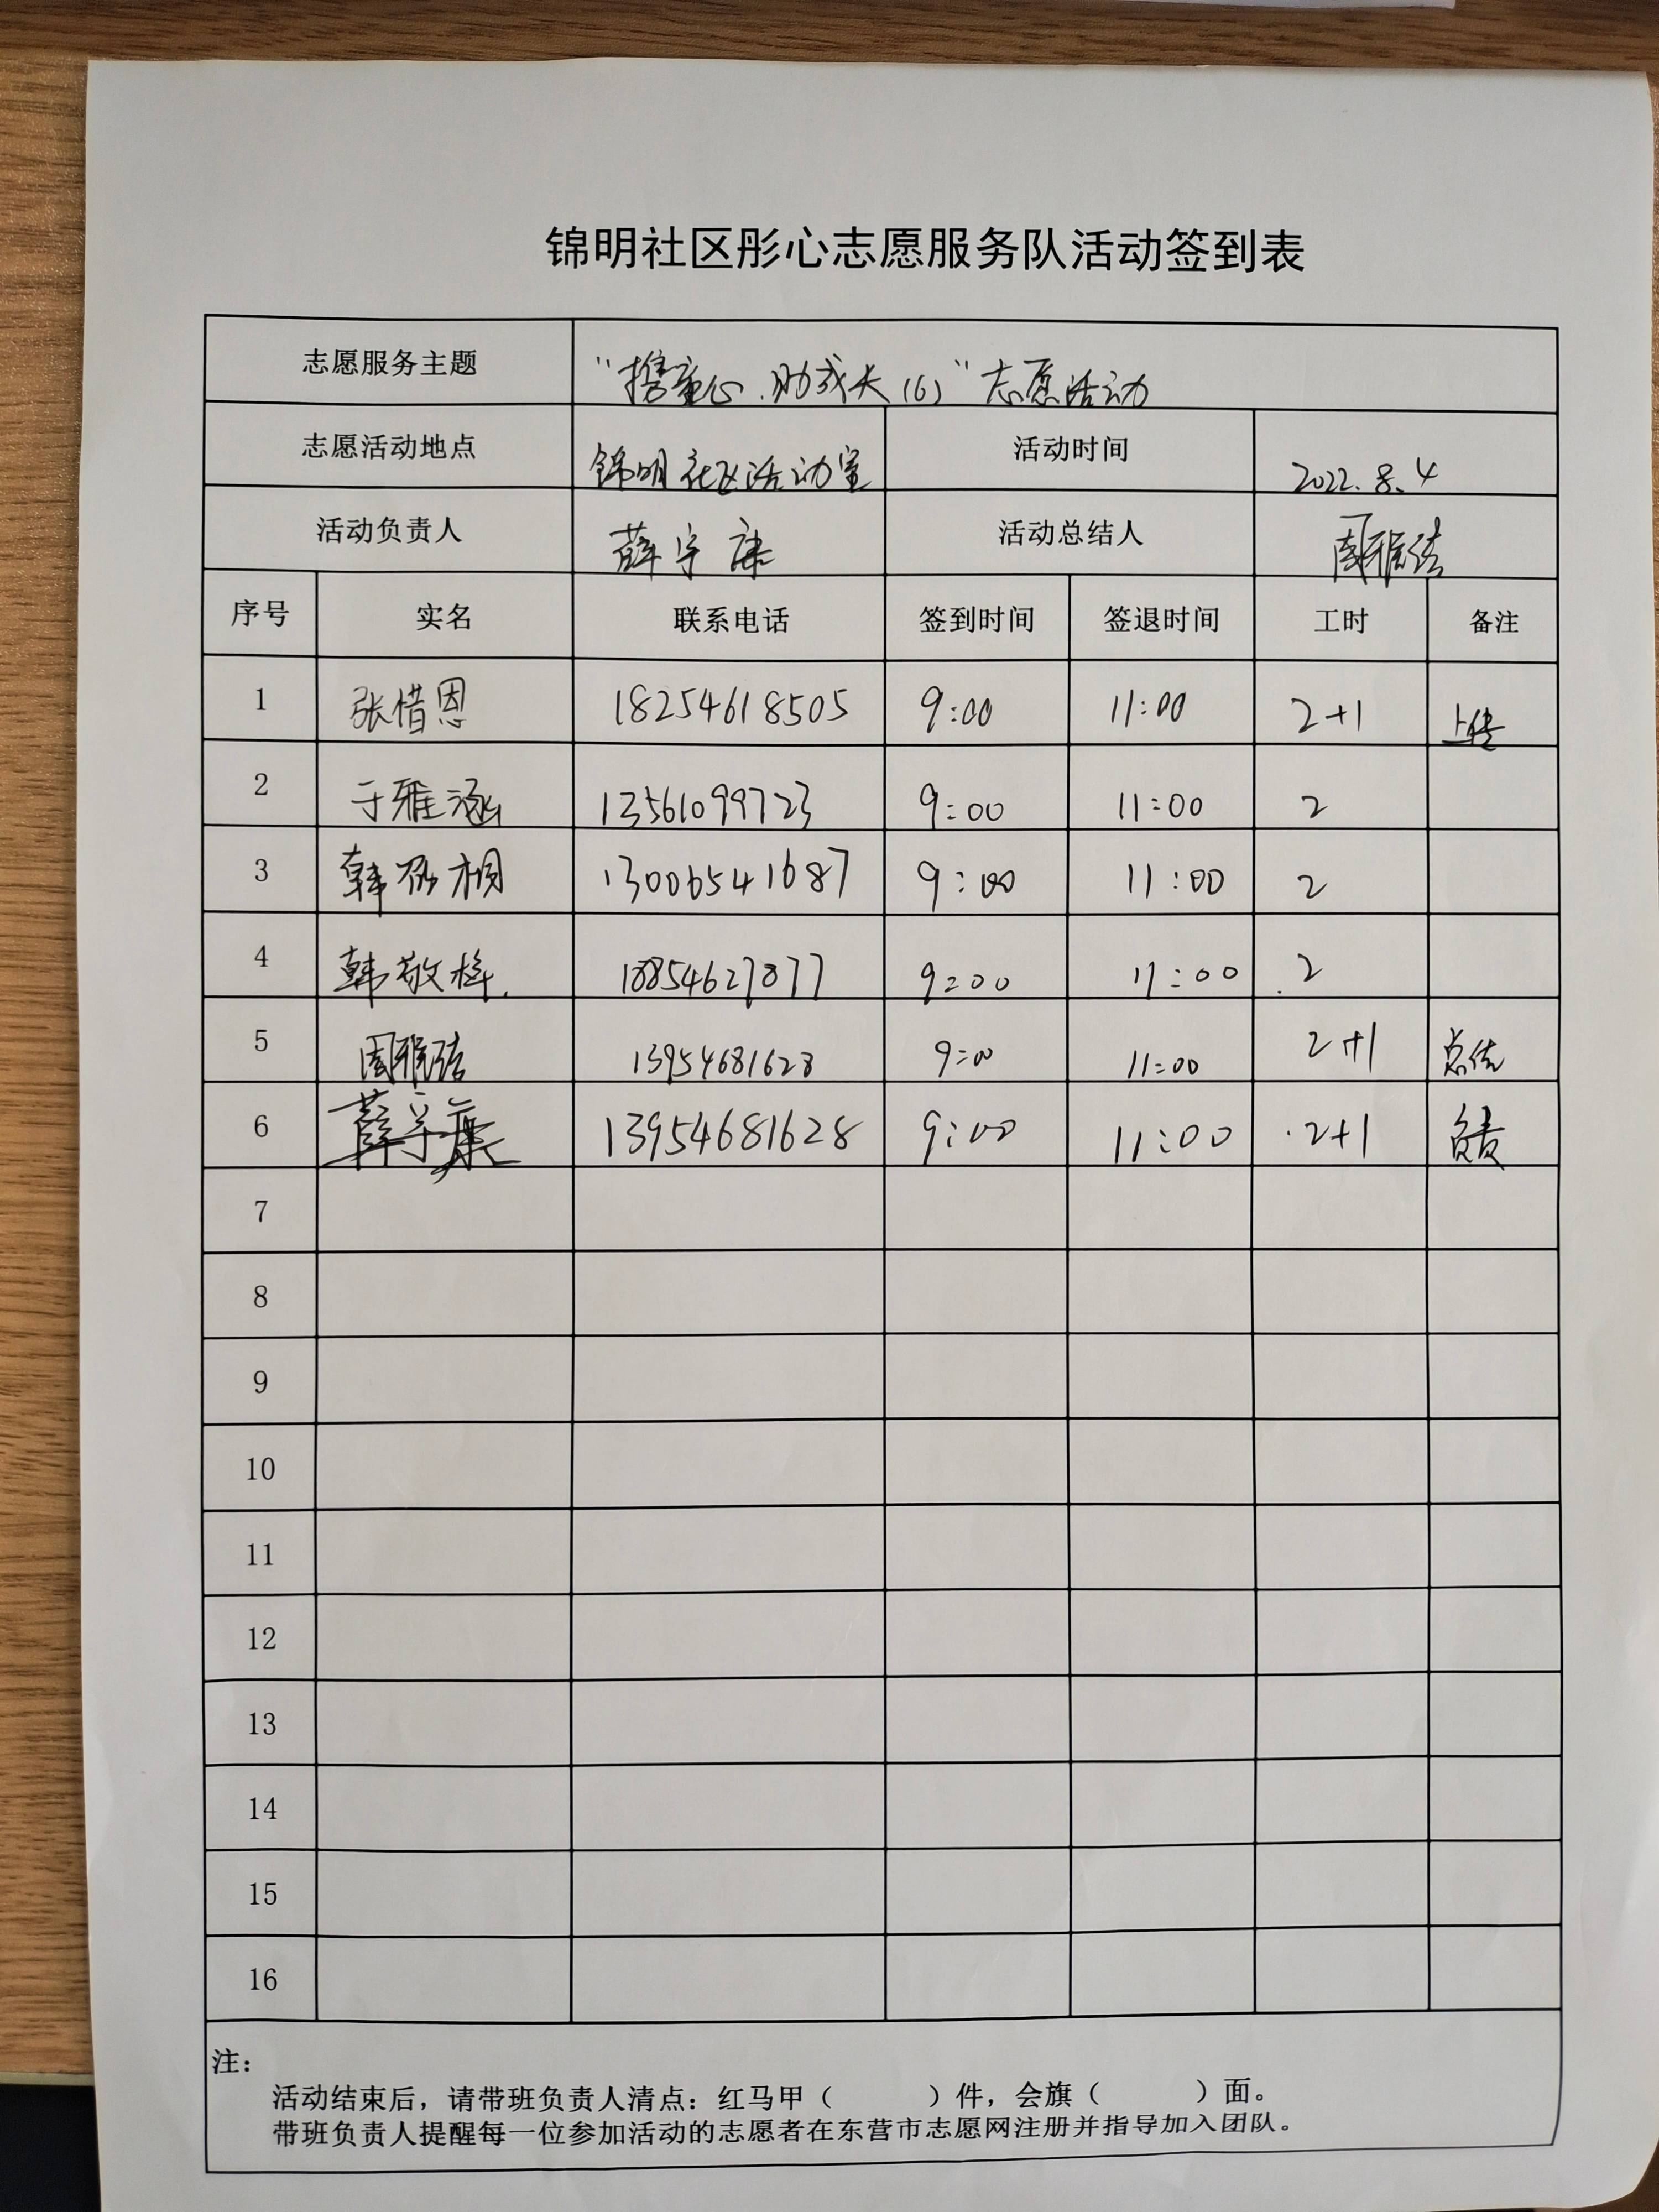 锦明社区彤心志愿服务队活动签到表
志愿服务主题 “携童心.助成长(6)”志愿活动
志愿活动地点 锦明社区活动室 活动时间 2022.8.4
活动负责人 薛宇康 活动总结人 周雅洁
序号 实名 联系电话 签到时间 签退时间 工时 备注
1 张惜恩 18254618505 9:00 11:00 2+1 上传
2 于雅涵 13561099723 9:00 11:00 2
3 韩 13006541687 9:00 11:00 2
4 韩敬梓 18854627877 9:00 11:00 2
5 周雅洁 13954681628 9:00 11:00 2+1 总结
6 薛宇康 13954681628 9:00 11:00 2+1 负责
7
8
9
10
11
12
13
14
15
16
注：
活动结束后，请带班负责人清点：红马甲（ ）件，会旗（ ）面。
带班负责人提醒每一位参加活动的志愿者在东营市志愿网注册并指导加入团队。